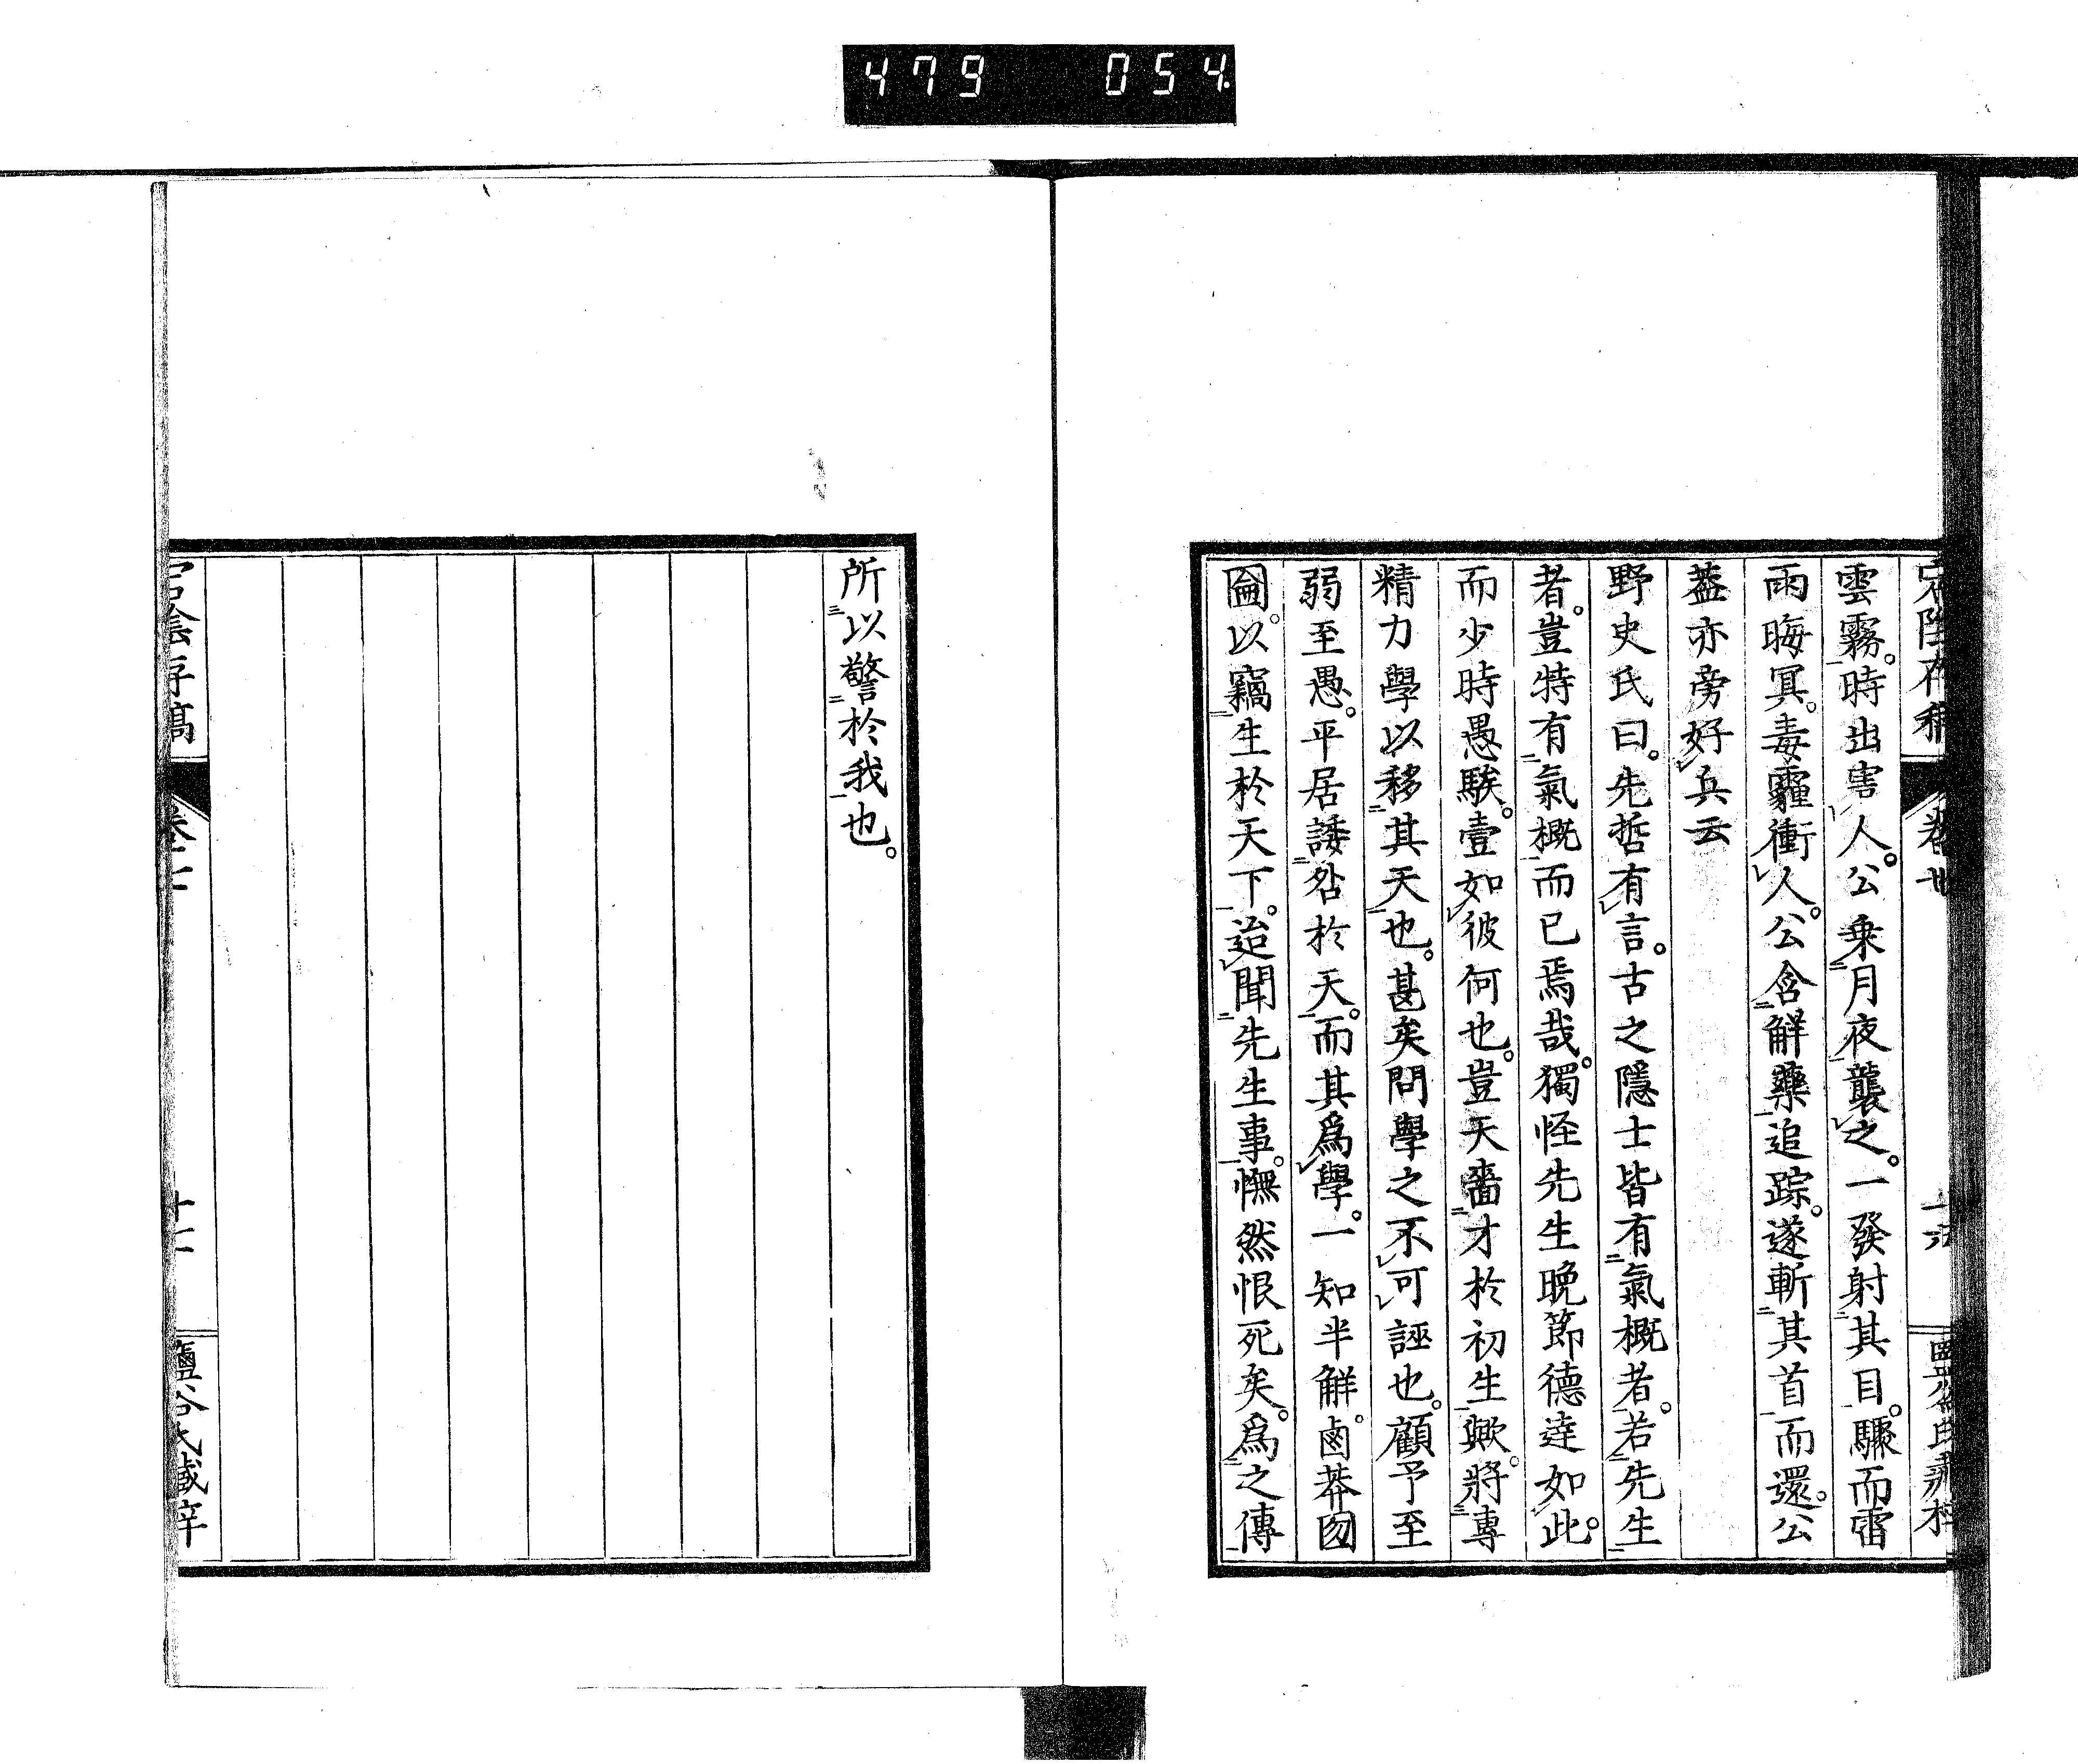 479 054
雲霧。時出害人。公乗月夜襲之。一發射其目。驟而霤
雨晦冥。毒霾衝人。公含解藥追踪。遂斬其首而還。公
葢亦旁好兵云
野史氏曰。先哲有言。古之隱士皆有氣概者。若先生
者。豈特有氣概而已焉哉。獨怪先生晩節德達如此。
而少時愚騃。壹如彼何也。豈天嗇才於初生歟。將專
精力學以移其天也。甚矣問學之不可誣也。顧予至
弱至愚。平居諉咎於天。而其爲學。一知半解。鹵莽囫
圇。以竊生於天下。迨聞先生事。憮然恨死矣。爲之傳
所以警於我也。
宕陰存稿
卷十
鹽谷氏藏梓